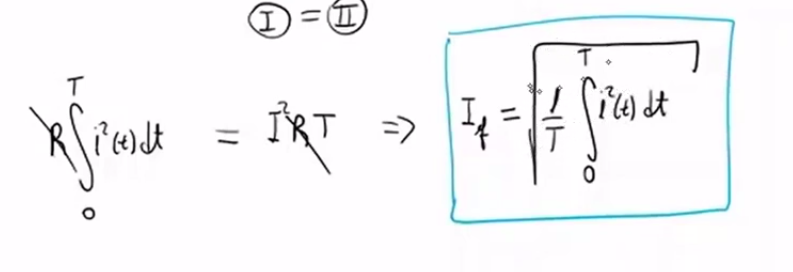 Ⓘ = Ⓘ Ⓘ
R ∫₀ᵀ i²(t) dt = I² R T ⇒ I_f = √(1/T ∫₀ᵀ i²(t) dt)